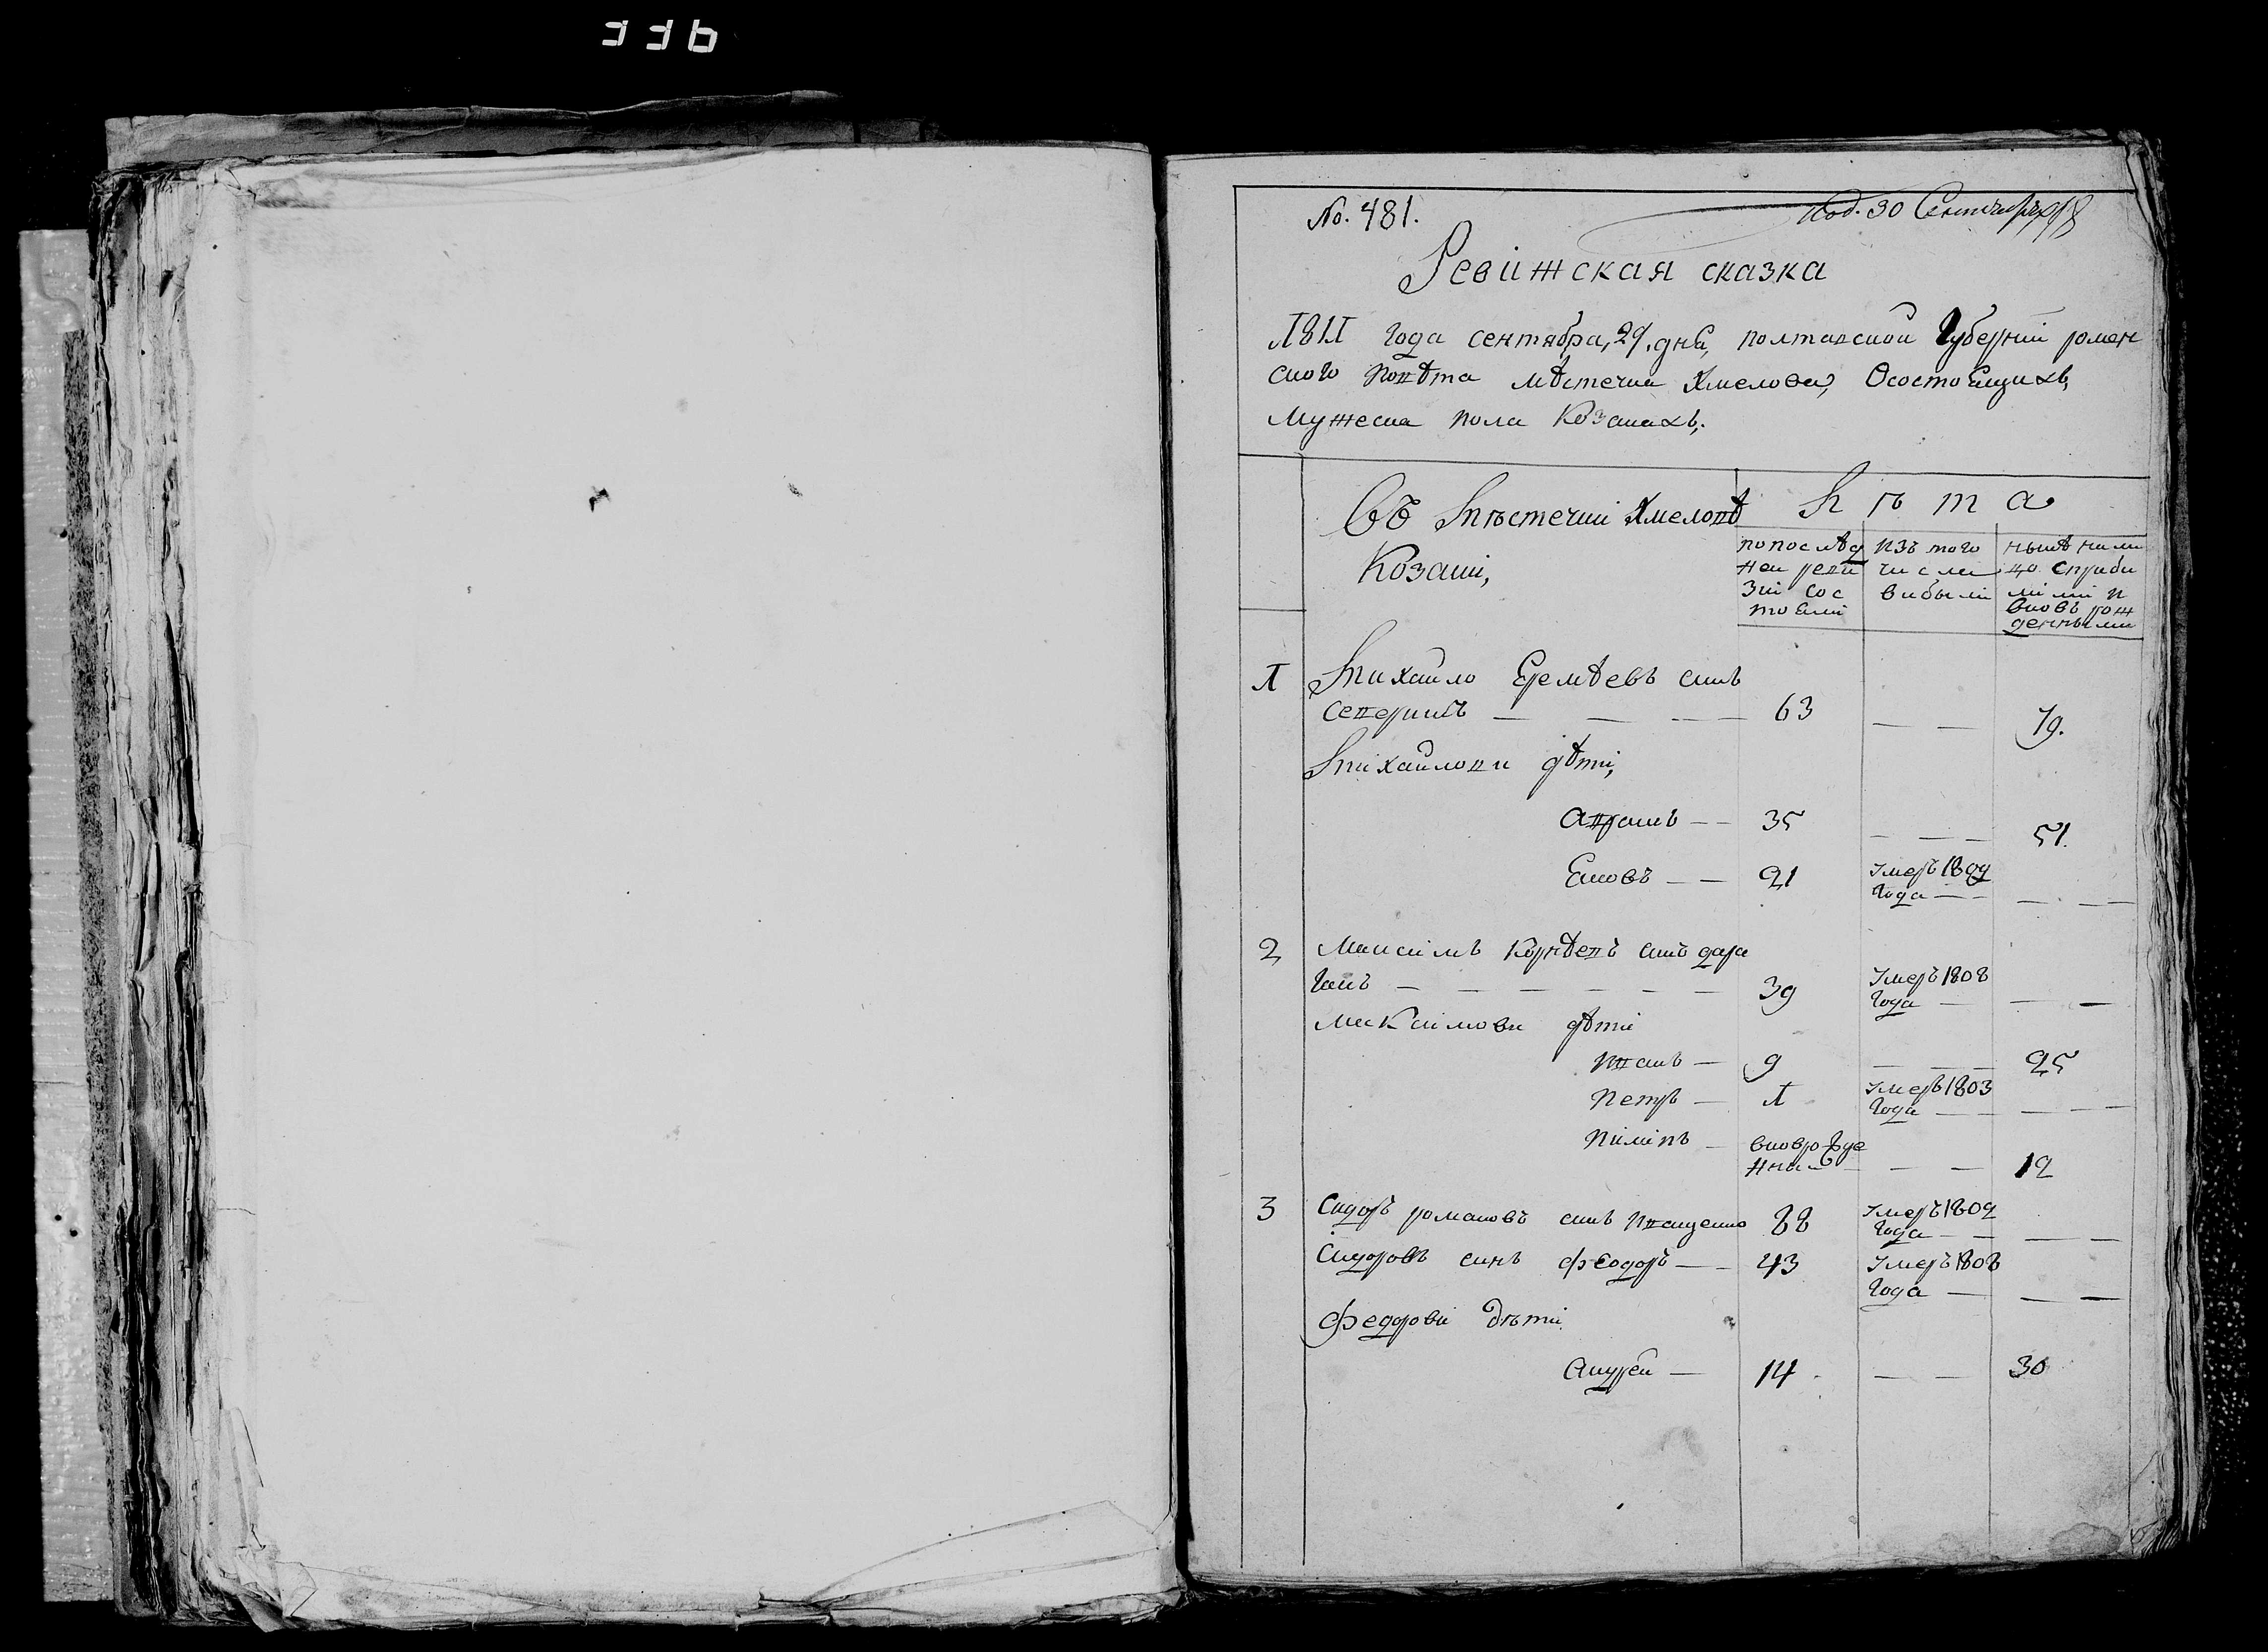 336
No. 481. Под. 30 Сентября
Ревижская сказка
1811 года сентября, 29, дня, полтавской Губернии ромен
ского повѣта мѣстечка Хмелова, Осостоящихъ,
мужеска пола Козакахъ,
Въ мѣстечки Хмеловѣ
Козаки,
Лѣта
попослѣд
ней реви
зіи сос
тоялі
изъ того
числа
выбылі
нынѣ нали
цо сприбы
лімі и
вновъ рож
деннымі
1 Михайло Еремѣевъ синъ
северинъ — — — 63 — — 79.
Михайлови дѣти,
Аврамъ — — 35 — — 51.
Яковъ — — 21 Умеръ 1809
года — — — —
2 Максімъ Корнѣевъ синъ дара
ганъ — — — — — — 39 Умеръ 1808
года — — —
Максімови дѣти
Иванъ — 9 — — 25
Петръ — 1 Умеръ 1803
года — — — —
Пиміпъ — вновьрожде
нна — — 12
3 Сидоръ романовъ синъ Иващенко 88 Умеръ 1802
года — — — —
Сидоровъ синъ Феодоръ — 43 Умеръ 1808
года — — —
Федорові дѣти
Андрей — 14 — — 30